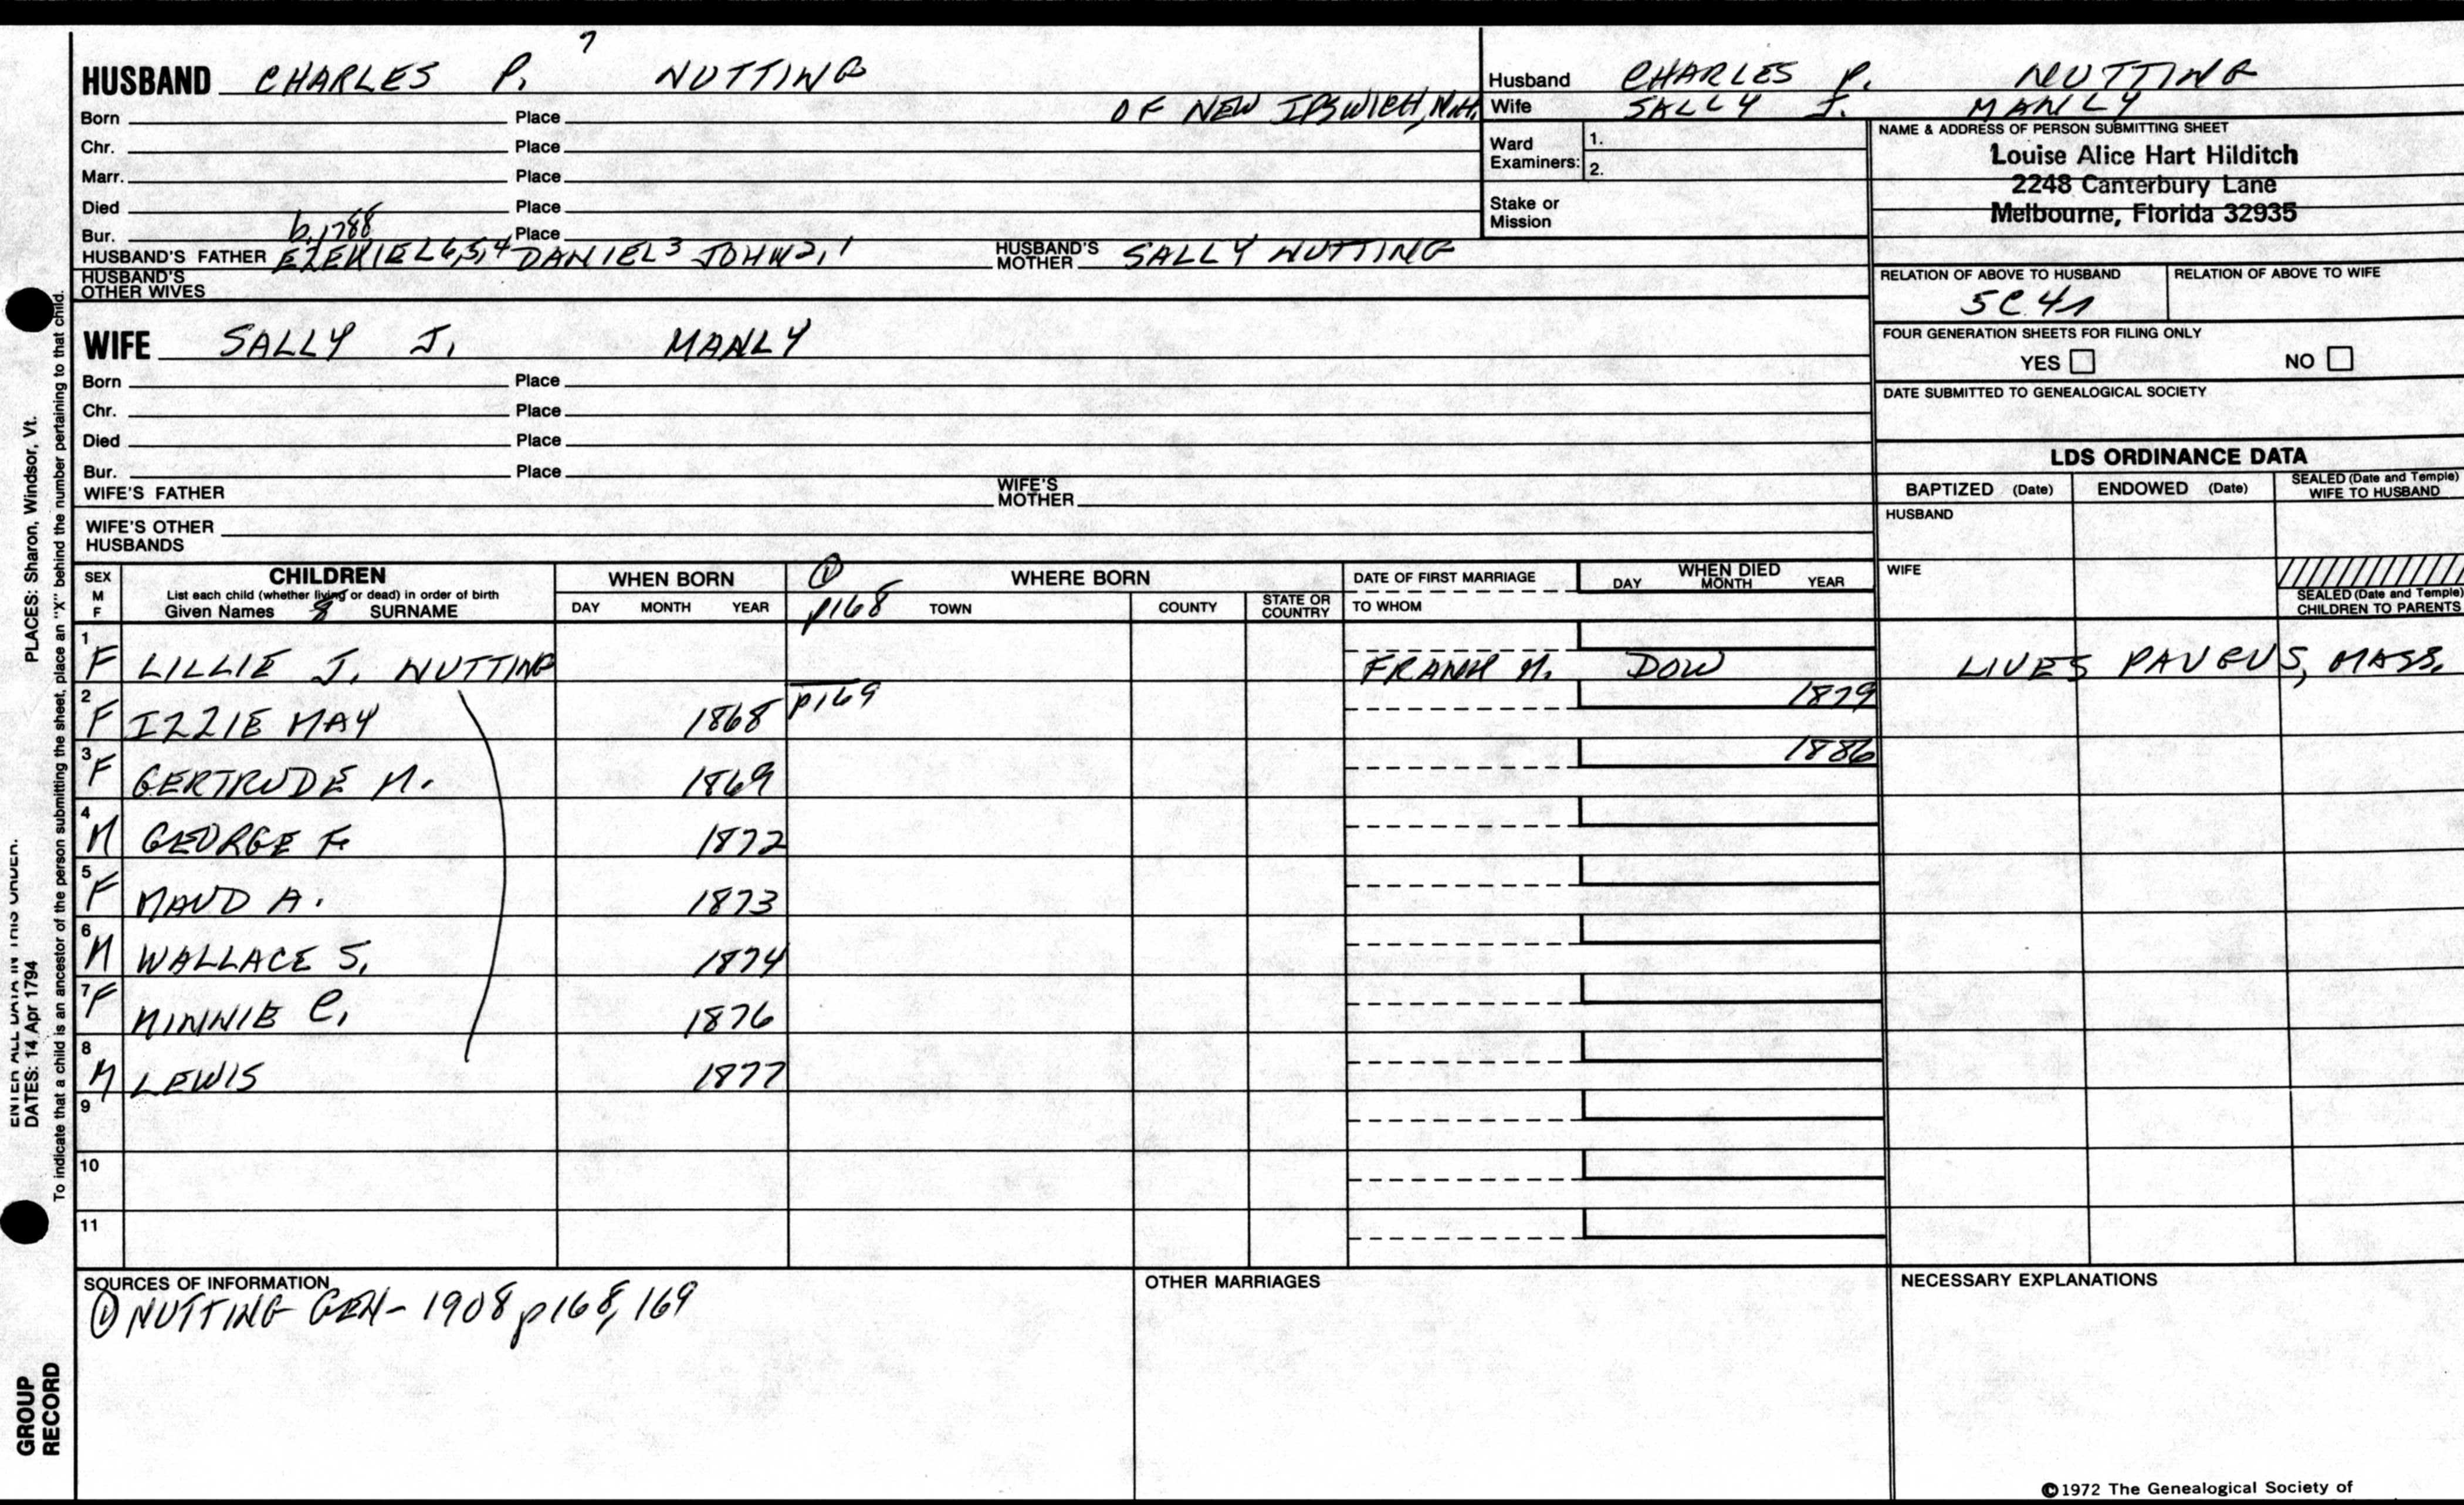 7
HUSBAND CHARLES P. NUTTING
OF NEW IPSWICH, N.H.
Born Place
Chr. Place
Marr. Place
Died Place
b. 1788
Bur. Place
HUSBAND'S FATHER EZEKIEL 6,5,4 DANIEL 3 JOHN 2,1 HUSBAND'S MOTHER SALLY NUTTING
HUSBAND'S OTHER WIVES
WIFE SALLY J. MANLY
Born Place
Chr. Place
Died Place
Bur. Place
WIFE'S FATHER WIFE'S MOTHER
WIFE'S OTHER HUSBANDS
Husband CHARLES P. NUTTING
Wife SALLY J. MANLY
Ward Examiners: 1.
2.
Stake or Mission
NAME & ADDRESS OF PERSON SUBMITTING SHEET
Louise Alice Hart Hilditch
2248 Canterbury Lane
Melbourne, Florida 32935
RELATION OF ABOVE TO HUSBAND RELATION OF ABOVE TO WIFE
5C4r
FOUR GENERATION SHEETS FOR FILING ONLY
YES NO
DATE SUBMITTED TO GENEALOGICAL SOCIETY
LDS ORDINANCE DATA
BAPTIZED (Date) ENDOWED (Date) SEALED (Date and Temple) WIFE TO HUSBAND
HUSBAND
WIFE
SEALED (Date and Temple) CHILDREN TO PARENTS
SEX M F
CHILDREN
List each child (whether living or dead) in order of birth
Given Names 8 SURNAME
WHEN BORN
DAY MONTH YEAR
① p168
WHERE BORN
TOWN COUNTY STATE OR COUNTRY
DATE OF FIRST MARRIAGE
TO WHOM
WHEN DIED
DAY MONTH YEAR
1 F LILLIE J. NUTTING FRANK M. DOW LIVES PAVEUS, MASS.
2 F IZZIE MAY 1868 p169 1879
3 F GERTRUDE M. 1869 1886
4 M GEORGE F. 1872
5 F MAUD A. 1873
6 M WALLACE S. 1874
7 F MINNIE C. 1876
8 M LEWIS 1877
9
10
11
SOURCES OF INFORMATION
① NUTTING GEN- 1908 p168, 169
OTHER MARRIAGES
NECESSARY EXPLANATIONS
©1972 The Genealogical Society of
ENTER ALL DATA IN THIS ORDER.
DATES: 14 Apr 1794 PLACES: Sharon, Windsor, Vt.
To indicate that a child is an ancestor of the person submitting the sheet, place an "X" behind the number pertaining to that child.
GROUP
RECORD